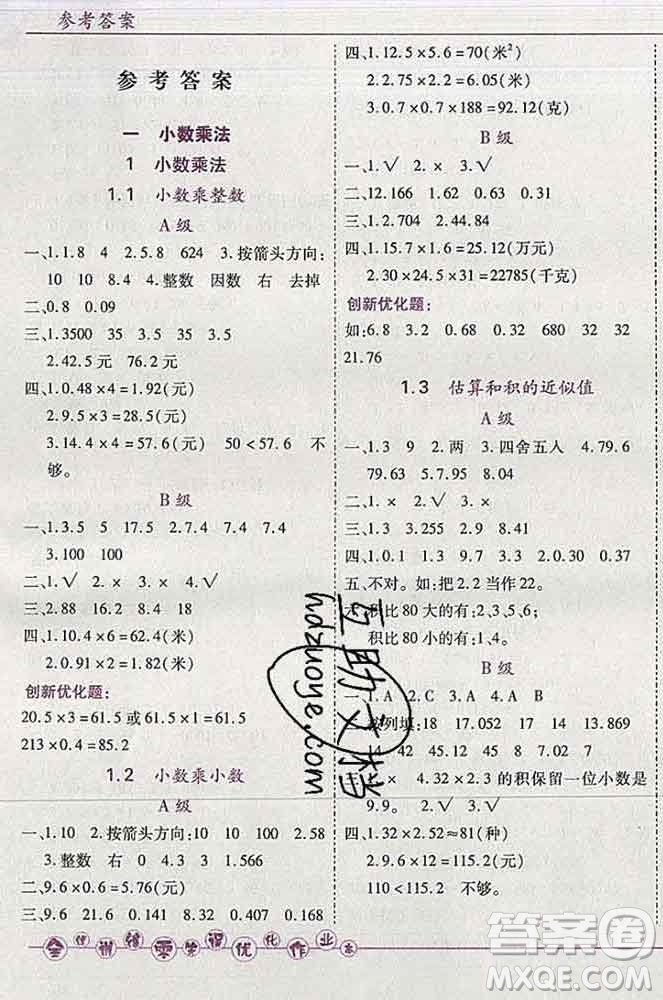 参考答案
参考答案
一 小数乘法
1 小数乘法
1.1 小数乘整数
A 级
一、1.1.8 4 2.5.8 624 3.按箭头方向:
10 10 8.4 4.整数 因数 右 去掉
二、0.8 0.09
三、1.3500 35 35 3.5
2.42.5元 76.2元
四、1.0.48×4=1.92(元)
2.9.5×3=28.5(元)
3.14.4×4=57.6(元) 50<57.6 不
够。
B 级
一、1.3.5 5 17.5 2.7.4 7.4 7.4
3.100 100
二、1.√ 2.× 3.× 4.√
三、2.88 16.2 8.4 9.18
四、1.10.4×6=62.4(米)
2.0.91×2=1.82(米)
创新优化题:
20.5×3=61.5或61.5×1=61.5
213×0.4=85.2
1.2 小数乘小数
A 级
一、1.10 2.按箭头方向:10 100 2.58
3.整数 右 0 4.3 1.566
二、9.6×0.6=5.76(元)
三、9.6 21.6 0.141 8.32 0.407 0.168
四、1.12.5×5.6=70(米²)
2.2.75×2.2=6.05(米)
3.0.7×0.7×188=92.12(克)
B 级
一、1.√ 2.× 3.√
二、12.166 1.62 0.63 0.36
三、1.2.704 2.44.84
四、1.15.7×1.6=25.12(万元)
2.30×24.5×31=22785(千克)
创新优化题:
如:6.8 3.2 0.68 0.32 680 32 32
21.76
1.3 估算和积的近似值
A 级
一、1.3 9 2.两 3.四舍五人 4.79.6
79.63 5.7.95 8.04
二、1.× 2.√ 3.×
三、1.3 3.255 2.91 5.32
四、1.0.1 1.3 9.7 3.3 2.D
五、不对。如:把2.2当作22。
积比80大的有:2、3、5、6;
积比80小的有:1、4。
B 级
一、1.A 2.C 3.A 4.A B
18 17.052 17 14 13.869
42 45.12 8 7.02 9 8.58
× 4.32×2.3的积保留一位小数是
9.9。 2.× 3.√
四、1.32×2.52≈81(种)
2.9.6×12=115.2(元)
110<115.2 不够。
互助文档
hdzuoye.com
优化作业
答案圈
MXQE.COM